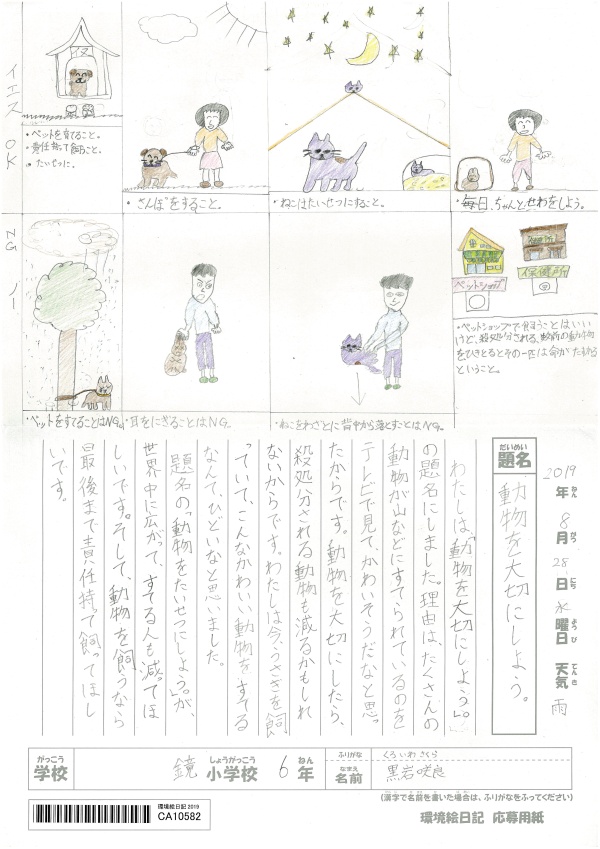 イエス OK
イヌ
・ペットを育てること。
・責任持って飼うこと。
・たいせつに。
・さんぽをすること。
・ねこはたいせつにすること。
・毎日、ちゃんとせわをしよう。
NG ノー
・ペットをすてることはNG。
・耳をにぎることはNG。
・ねこをわざとに背中から落とすことはNG。
ペットショップ
保健所
・ペットショップで飼うことはいい
けど、殺処分される、
をひきとるとその一匹は命がたすかる
ということ。
2019年ねん 8月がつ 28日にち 水曜日ようび 天気てんき 雨
題名だいめい 動物を大切にしよう。
わたしは、「動物を大切にしよう。」
の題名にしました。理由は、たくさんの
動物が山などにすてられているのを
テレビで見て、かわいそうだなと思っ
たからです。動物を大切にしたら、
殺処分される動物も減るかもしれ
ないからです。わたしは今、うさぎを飼
っていて、こんなかわいい動物をすてる
なんて、ひどいなと思いました。
題名の「動物をたいせつにしよう。」が、
世界中に広がって、すてる人も減ってほ
しいです。そして、動物を飼うなら
最後まで責任持って飼ってほし
いです。
学校がっこう 鏡 小学校しょうがっこう 6年ねん
ふりがな くろいわさくら
名前なまえ 黒岩咲良
(漢字で名前を書いた場合は、ふりがなをふってください)
環境絵日記2019
CA10582
環境絵日記 応募用紙